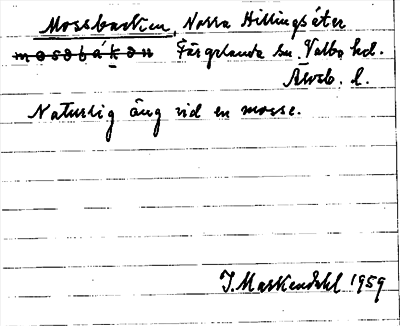 Mossbacken, Norra Hillingsäter
mosobákən Färgelanda sn. Valbo hd.
Älvsb. l.
Naturlig äng vid en mosse.
J. Markendahl 1959